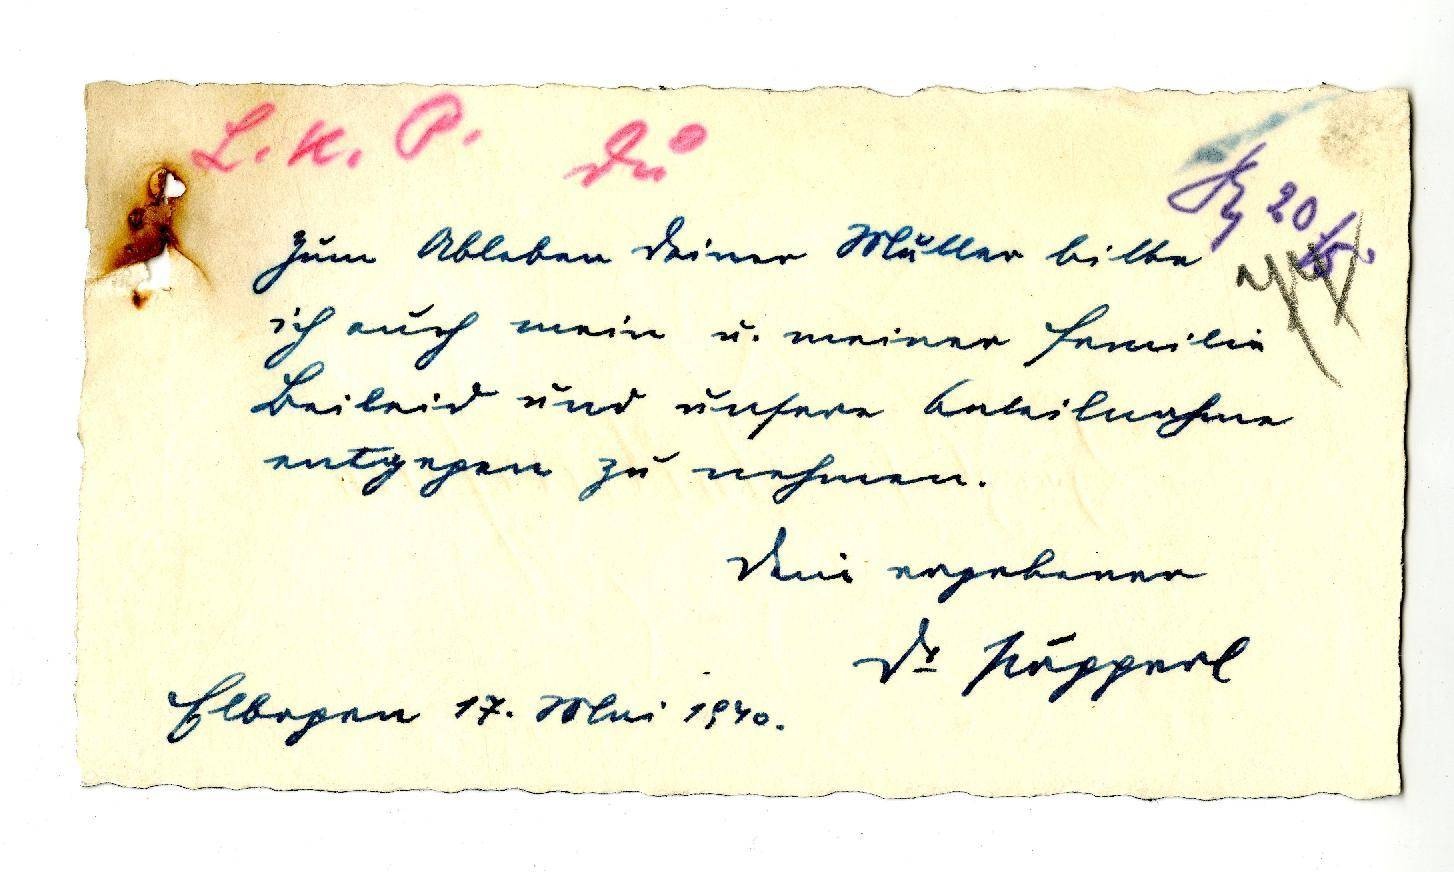 L. K. P. Du
20/5.
Zum Ableben Deiner Mutter bitte
ich auch mein u. meiner Familie
Beileid und unsere Anteilnahme
entgegen zu nehmen.
Dein ergebener
Dr
Elbogen 17. Mai 1940.